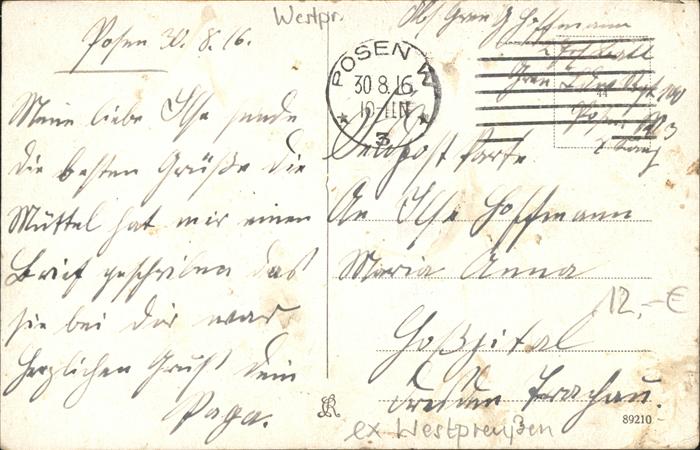 Westpr.
Posen 30.8.16.
Meine liebe Ilse sende
die besten Grüße die
Müttel hat mir einen
Brief geschrieben das
sie bei dir war
herzlichen Gruß dein
Papa.
Abs. Gren G Hoffmann
POSEN W
30 8.16
3
Posen W 3
Feldpost Karte
An Ilse Hoffmann
Maria Anna
Hoßpital
Dresden Trachau.
12,-€
89210
ex Westpreußen